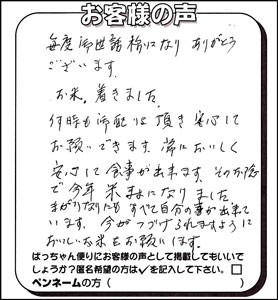 お客様の声
毎度御世話様になり ありがとう
ございます。
お米。着きました。
何時も御配
頂き 安心して
お願いできます。常においしく
安心して食事が出来ます。そのお陰
で今年 米
になりました。
まがりなりにも すべて自分の事が出来て
います。今がつづけられますように
おいしいお米をお願いします。
ばっちゃん便りにお客様の声として掲載してもいいで
しょうか?匿名希望の方は✓を記入して下さい。□
ペンネームの方( )